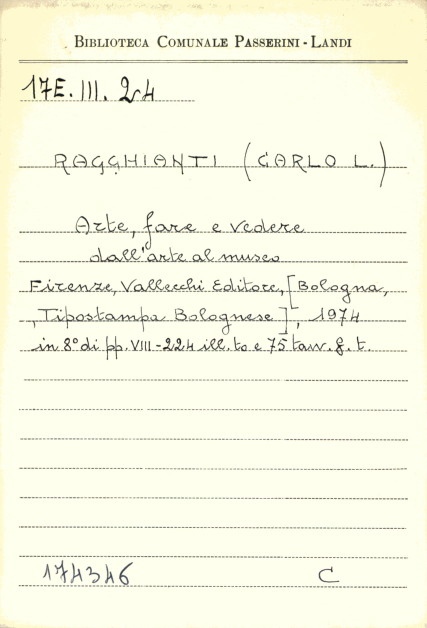 BIBLIOTECA COMUNALE PASSERINI-LANDI
17E. III. 24
RAGGHIANTI (CARLO L.)
Arte, fare e vedere
dall'arte al museo
Firenze, Vallecchi Editore, [Bologna,
, Tipostampa Bolognese], 1974
in 8° di pp. VIII-224 ill.to e 75 tavv. f. t.
174346 C